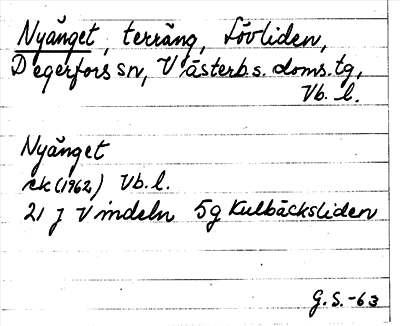 Nyänget, terräng, Lövliden,
Degerfors sn, Västerb.s. doms.tg,
Vb. l.
Nyänget
ek (1962) Vb. l.
21 J Vindeln 5g Kulbäcksliden
G.S.-63